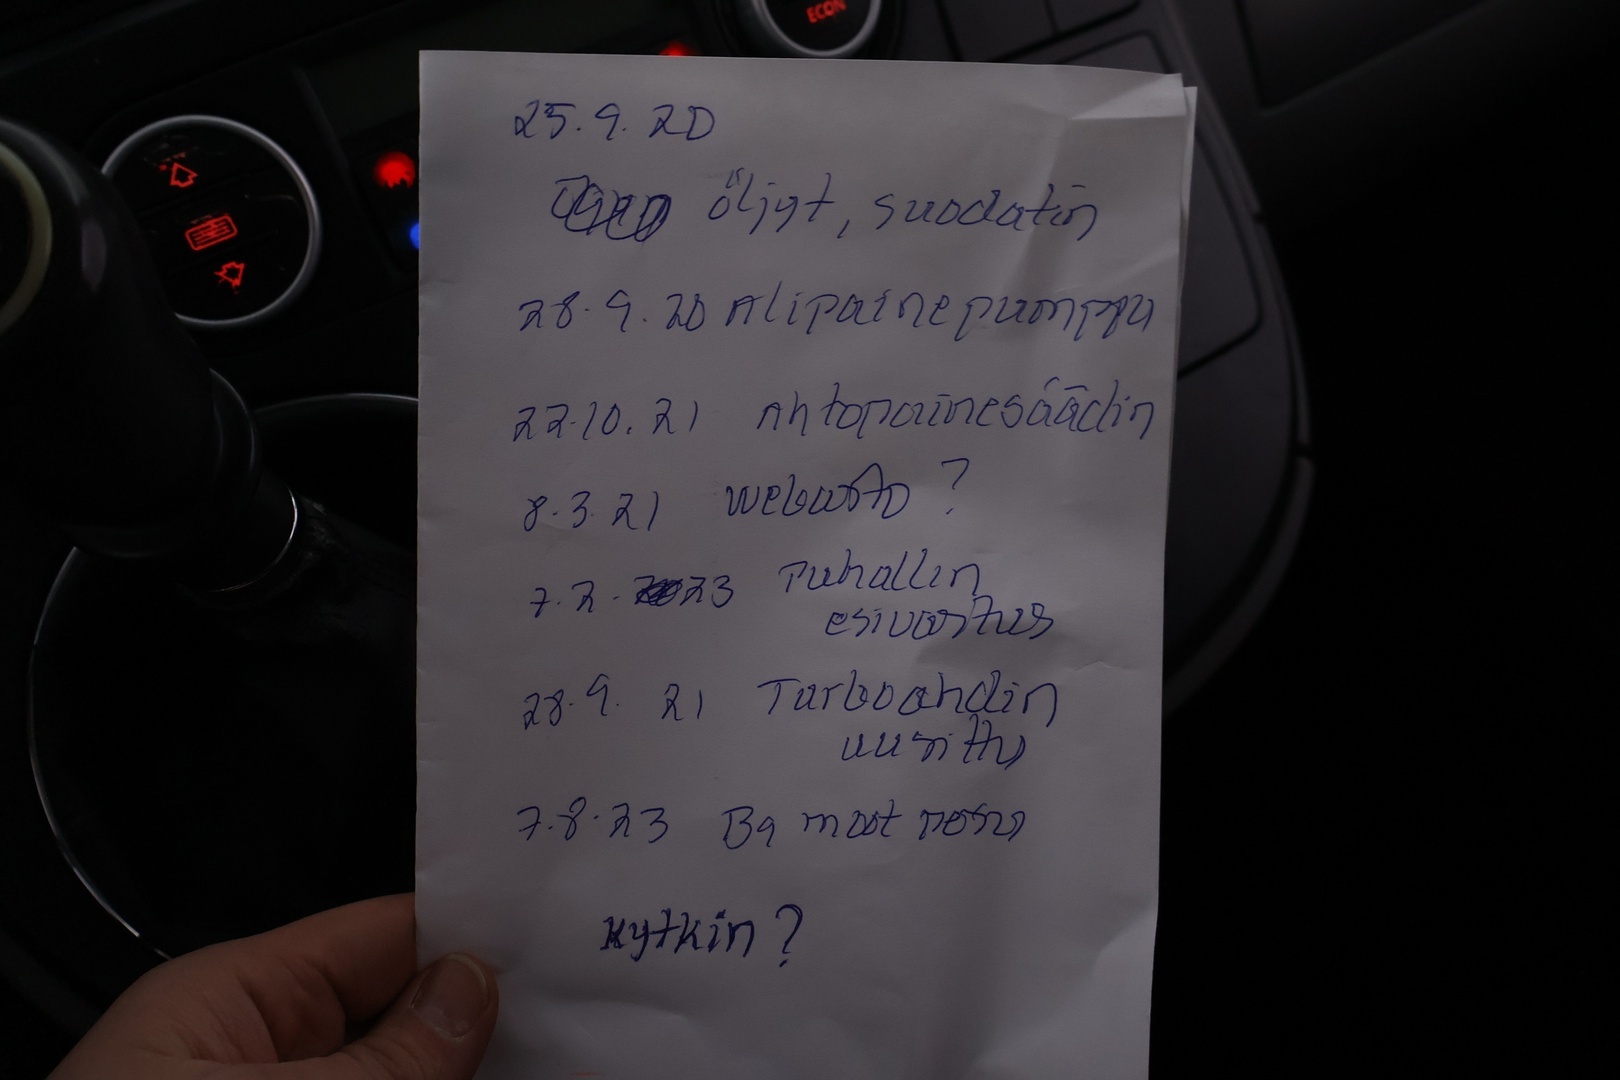 ECON
25.9.20
öljyt, suodatin
28.9.20 Alipainepumppu
22.10.21 Ahtopainesäädin
8.3.21 Webasto ?
7.2. 23 Puhallin
esivastus
28.9. 21 Turboahdin
uusittu
7.8.23 Bq moot pesu
Kytkin ?